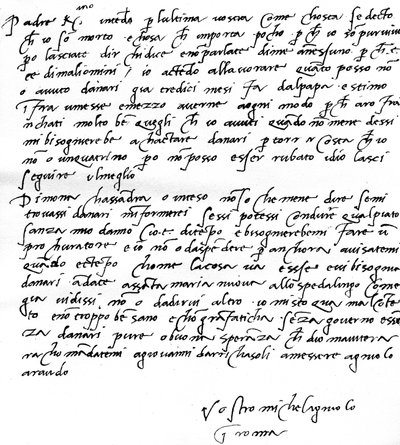 Padre R(ev)mo intendo p(er) lultima vostra Come Chosta se decto
Ch(e) io so morto e chosa Ch(e) importa pocho p(er) Ch(e) io so pur vivo
po lasciate dir chi dice e no(n) parlate di me a nessuno p(er)ch(e) c e
ce di mali omini / io actedo allavorare quanto posso no(n)
o avuto danari gia tredici mesi fa dal papa e stimo
i(n) fra un mese e mezzo averne a ogni modo p(er) ch(e) aro fra
nchati molto be(n) quegli ch(e) io avuti quando no(n) me ne dessi
mi bisognierebe achactare danari p(er) torn(a)r costa ch(e) io
no(n) o un quactri(n)o po no(n) posso esser rubato idio lasci
seguire il meglio
Di mona Chassa(n)dra o inteso no(n) so che me ne dire se mi
trovassi danari mi(n)formerei se si potessi Condure qua el piato
sanza mio danno cioe di tempo e bisognierebemi fare un
prochuratore e io no(n) o da spendere p(er) anchora avisatemi
quando e tempo chome la cosa va e sse e vi bisogna
danari andate a Sa(n)ta maria nuova allo spedalingo Come
gia vi dissi no(n) o da dirvi altro io mi sto qua mal co(n)te(n)
to e no(n) troppo be(n) sano e cho(n) gra(n) faticha senza governo e sse(n)
za danari pure o buona speranza ch(e) dio m aiutera
racho mandatemi a giovanni da richasoli a messere agniolo
araldo
Vostro michelagniolo
i(n) roma